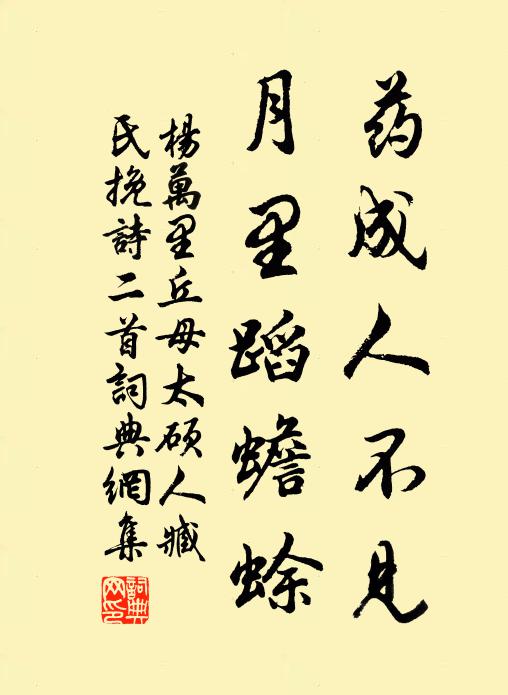 药成人不见
月里蹈蟾蜍
楊萬里丘母太碩人臧
氏挽詩二首詞典網集